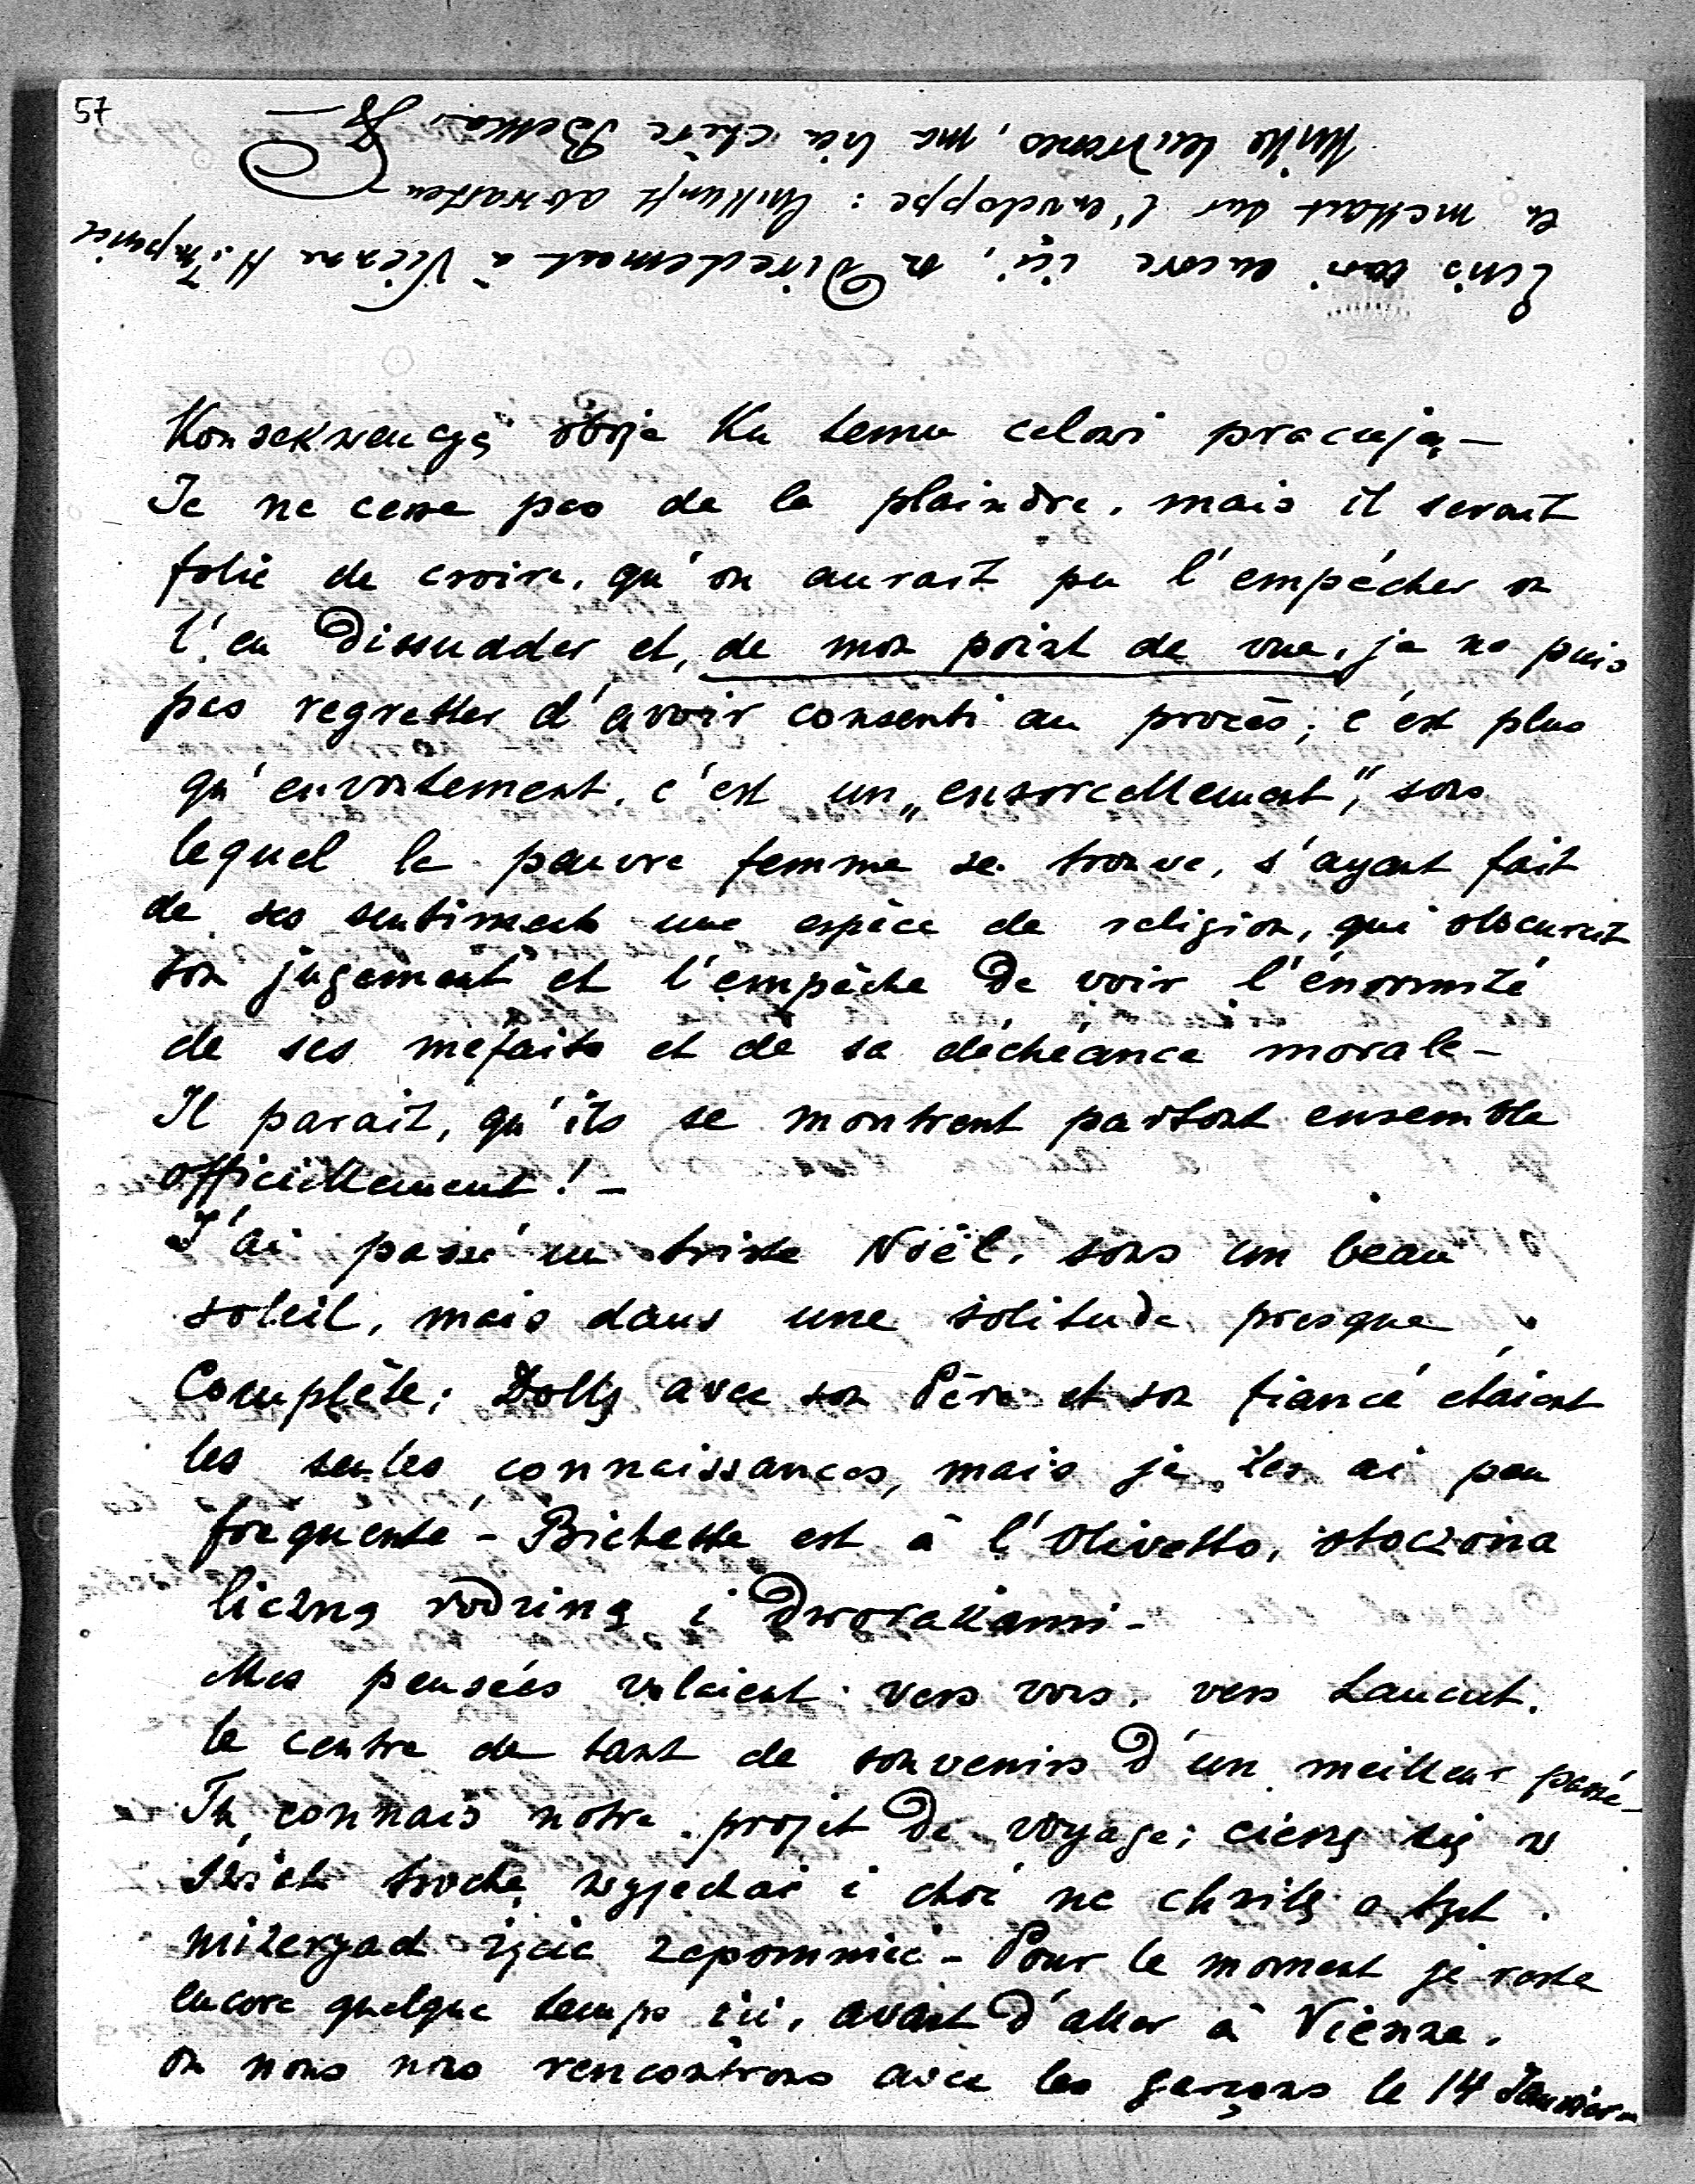 57
Konsekwencyą oboje ku temu celowi pracują –
Je ne cesse pas de la plaindre, mais il serait
folie de croire, qu'on aurait pu l'empêcher ou
l'en dissuader et, de mon point de vue, je ne puis
pas regretter d'avoir consenti au procès; c'est plus
qu'envoûtement, c'est un „ensorcellement", sous
lequel la pauvre femme se trouve, s'ayant fait
de ses sentiments une espèce de religion, qui obscurcit
son jugement et l'empêche de voir l'énormité
de ses méfaits et de sa déchéance morale –
Il parait, qu'ils se montrent partout ensemble
officiellement! –
J'ai passé un triste Noël, sous un beau
soleil, mais dans une solitude presque
complète; Dolly avec son Père et son fiancé étaient
les seules connaissances, mais je les ai peu
fréquenté – Bichette est à l'Olivetto, otoczona
liczną rodziną i dworakami –
Mes pensées volaient vers vous, vers Lancut,
le centre de tant de souvenirs d'un meilleur passé –
Tu connais notre projet de voyage; cieszę się w
świat trochę wyjechać i choć na chwilę o tych
mizeryach życia zapomnieć – Pour le moment je reste
encore quelque temps ici, avant d'aller à Vienne,
ou nous nous rencontrons avec les garçons le 14 Janvier –
Ecris moi encore ici, ou directement à Vienne H. Imperial
en mettant sur l'enveloppe: Ankunft abwarten
Mille tendresses, ma très chère Betka.